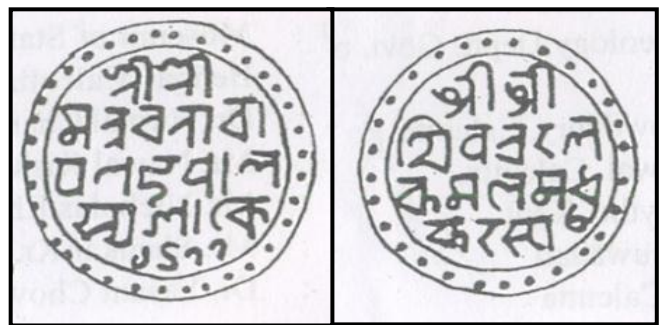 শ্রীশ্রী
মন্নরনারা
য়নভূপাল
স্যশাকে
১৪৭৭
শ্রী শ্রী
শিবচরণ
কমলমধু
করস্য